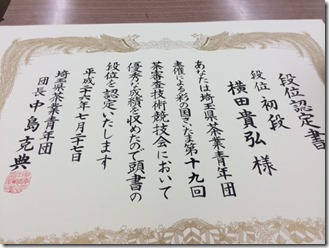 段位認定書
段位 初段
横田貴弘 様
あなたは埼玉県茶業青年団
主催による彩の国さいたま第十九回
茶審査技術競技会において
優秀な成績を収めたので頭書の
段位を認定いたします
平成二十六年七月二十七日
埼玉県茶業青年団
団長 中島克典